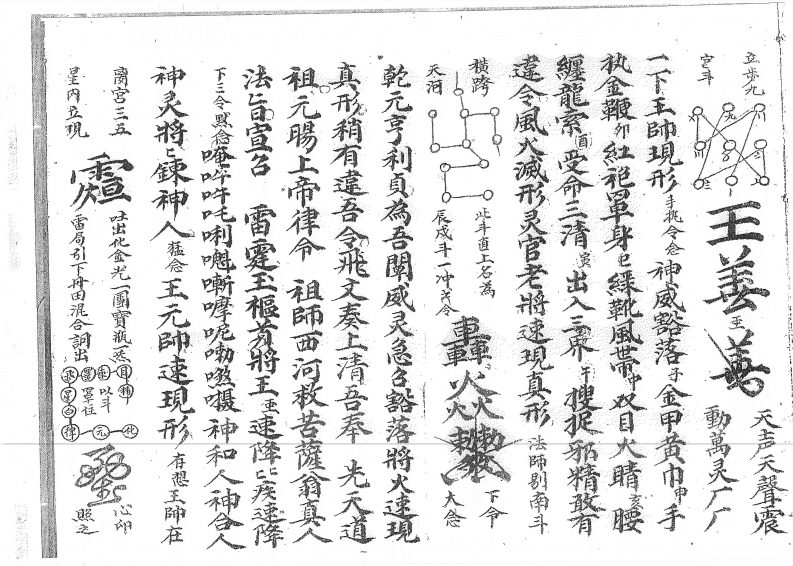 立步九
宮斗
王善
天声天聲震
動萬灵厂厂
一下王帥現形手执令念神威豁落子金甲黄巾申手
执金鞭卯紅袍罩身巳綠靴風帶中双目火睛亥腰
纏龍索酉受命三清寅出入三界午搜捉邪精敢有
違令風火滅形灵官老將速現真形法師剔南斗
橫跨
天河
此斗直上名為
辰戌斗一冲
下令
大念
乾元亨利貞為吾闡威灵急召豁落將火速現
真形稍有違吾令飛文奏上清吾奉先天道
祖元陽上帝律令祖師西河救苦薩翁真人
法旨宣召雷霆玉樞苟將王速降疾速降
下三令默念唵吽吽吒唎神和人神合人
神灵將錬神入猛念王元帥速現形有想王帥在
离宮三五
星内立現
吐出化金光一團寶瓶一炁
雷局引下丹田混合調出
以斗
罩住
心印
照之